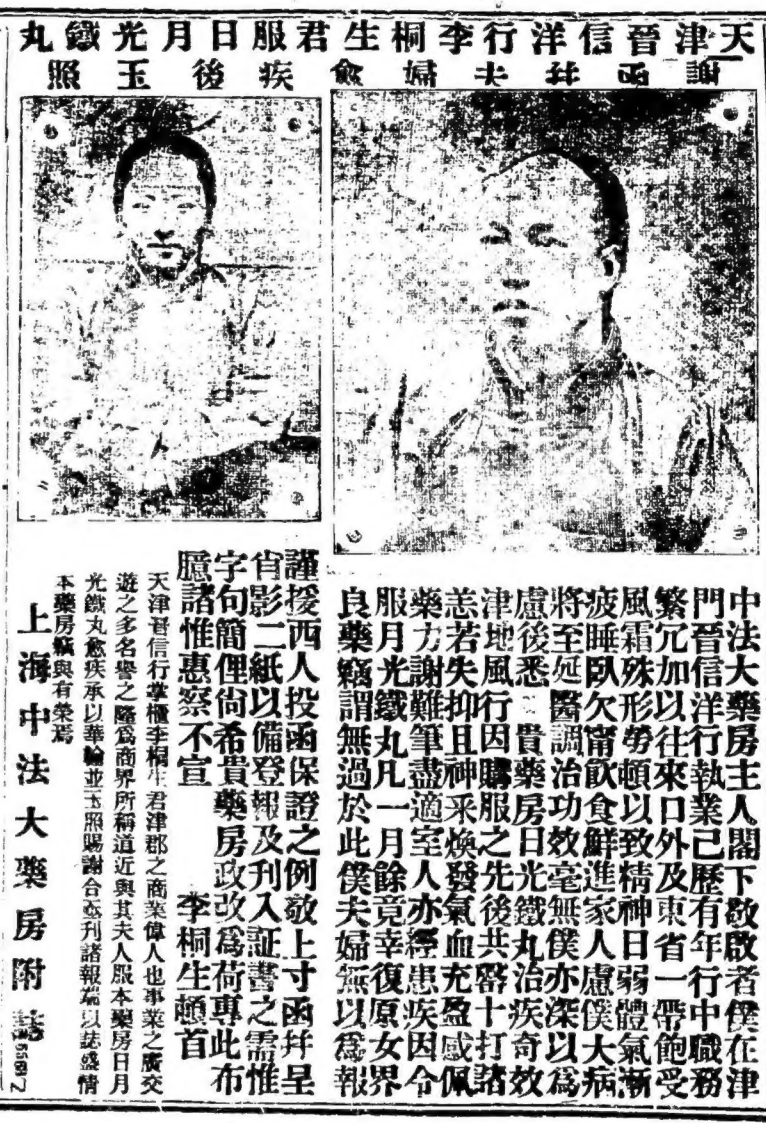 天津晉信洋行李桐生君服日月光鐵丸
謝函并夫婦愈疾後玉照
中法大藥房主人閣下敬啟者僕在津
門晉信洋行執業己歷有年行中職務
繁冗加以往來口外及東省一帶飽受
風霜殊形勞頓以致精神日弱體氣漸
疲睡臥欠甯飲食鮮進家人慮僕大病
將至延醫調治功效毫無僕亦深以爲
慮後悉 貴藥房日光鐵丸治疾奇效
津地風行因購服之先後共罄十打諸
恙若失抑且神采煥發氣血充盈感佩
藥力謝難筆盡適室人亦經患疾因令
服月光鐵丸凡一月餘竟幸復原女界
良藥竊謂無過於此僕夫婦無以爲報
謹援西人投函保證之例敬上寸函幷呈
肖影二紙以備登報及刊入証書之需惟
字句簡俚尙希貴藥房政改爲荷專此布
臆諸惟惠察不宣 李桐生頓首
天津晉信行掌櫃李桐生君津郡之商業偉人也事業之廣交
遊之多名譽之隆爲商界所稱道近與其夫人服本藥房日月
光鐵丸愈疾承以華翰並玉照賜謝合亟刊諸報端以誌盛情
本藥房竊與有榮焉
上海中法大藥房附誌